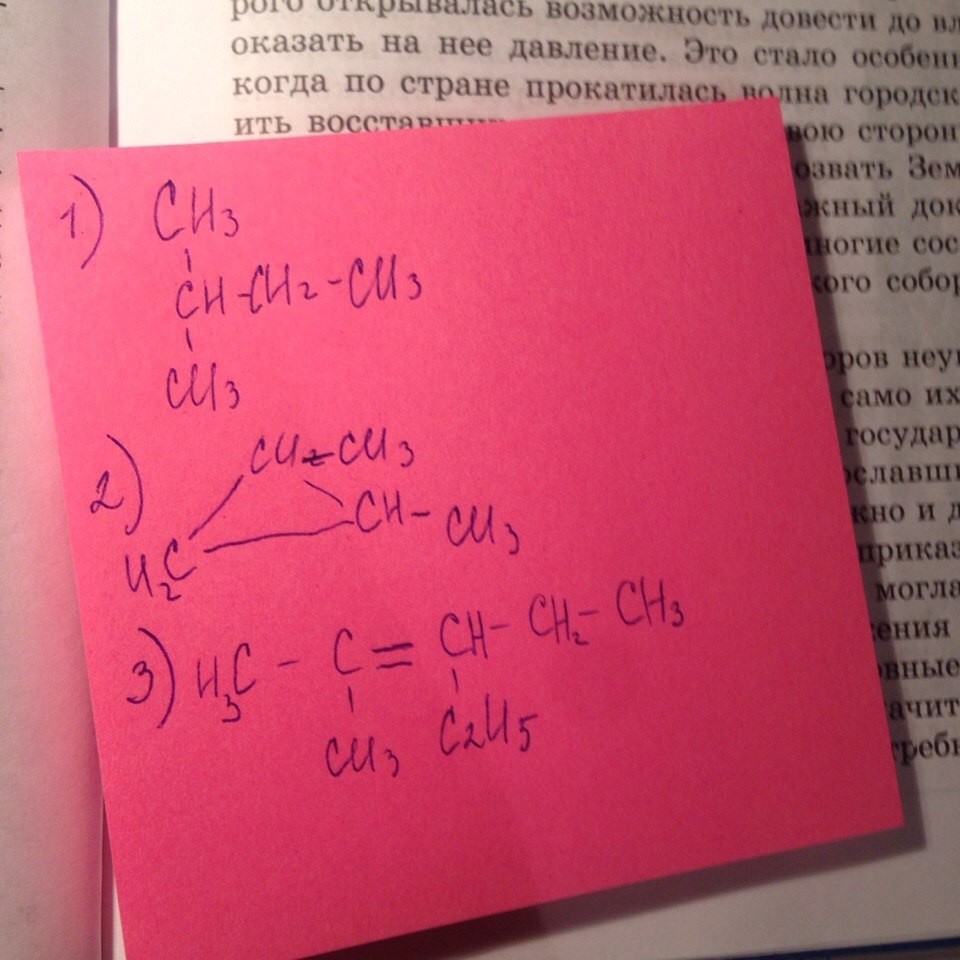 рого открывалась возможность довести до вл
оказать на нее давление. Это стало особен
когда по стране прокатилась волна городск
ить восставших вою сторон
озвать Зем
жный док
многие сос
кого собор
оров неу
само их
государ
ославши
жно и д
приказ
могла
сения
вные
ачит
требн
1) CH3
CH-CH2-CH3
CH3
2) CH-CH3
CH-CH3
H2C
3) H3C - C = CH- CH2- CH3
CH3 C2H5